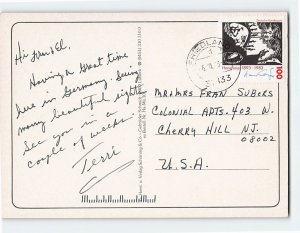 Hi Fran & El,
Having a Great time
here in Germany. Seeing
many beautiful sights
See you in a
couple of weeks.
Terri
1883-1983
100
133
MR & MRS FRAN SUBERS
COLONIAL ARTS. 403 W.
CHERRY HILL N.J.
08002
U.S.A.